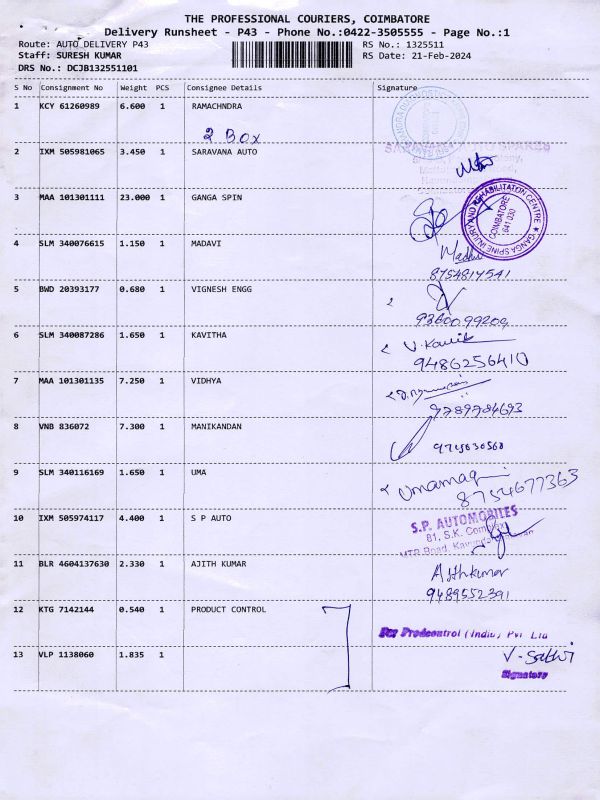 THE PROFESSIONAL COURIERS, COIMBATORE
Delivery Runsheet - P43 - Phone No.:0422-3505555 - Page No.:1
Route: AUTO DELIVERY P43
RS No.: 1325511
Staff: SURESH KUMAR
RS Date: 21-Feb-2024
DRS No.: DCJB132551101
S No Consignment No Weight PCS Consignee Details Signature
1 KCY 61260989 6.600 1 RAMACHNDRA
2 Box
2 IXM 505981065 3.450 1 SARAVANA AUTO
3 MAA 101301111 23.000 1 GANGA SPIN
GANGA SPINE INJURY AND REHABILITATION CENTRE
COIMBATORE
641 030
4 SLM 340076615 1.150 1 MADAVI
Madhu
8754817541
5 BWD 20393177 0.680 1 VIGNESH ENGG
9360099209
6 SLM 340087286 1.650 1 KAVITHA
9486256410
7 MAA 101301135 7.250 1 VIDHYA
9789784693
8 VNB 836072 7.300 1 MANIKANDAN
9715830568
9 SLM 340116169 1.650 1 UMA
Umamaqi
8754677363
10 IXM 505974117 4.400 1 S P AUTO
S.P. AUTOMOBILES
81, S.K. Complex
MTR Road,
11 BLR 4604137630 2.330 1 AJITH KUMAR
Ajithkumar
9489552391
12 KTG 7142144 0.540 1 PRODUCT CONTROL
For Prodcontrol (India) Pvt Ltd
13 VLP 1138060 1.835 1
V-Sathi
Signatory